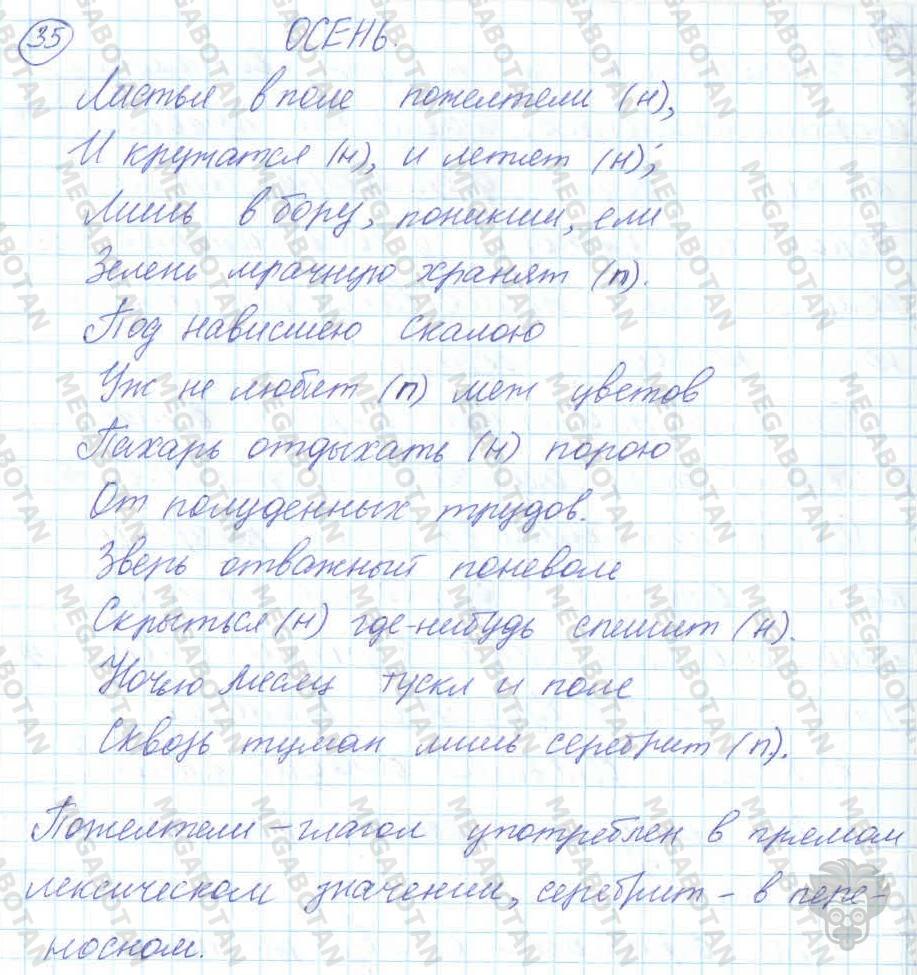 35 ОСЕНЬ.
Листья в поле пожелтели (н),
И кружатся (н), и летят (н);
Лишь в бору, поникши, ели
Зелень мрачную хранят (п).
Под нависшею скалою
Уж не любит (п) меж цветов
Пахарь отдыхать (н) порою
От полуденных трудов.
Зверь отважный поневоле
Скрыться (н) где-нибудь спешит (н).
Ночью месяц тускл и поле
Сквозь туман лишь серебрит (п).
Пожелтели - глагол употреблен в прямом
лексическом значении, серебрит - в пере-
носном.
MEGABOTAN